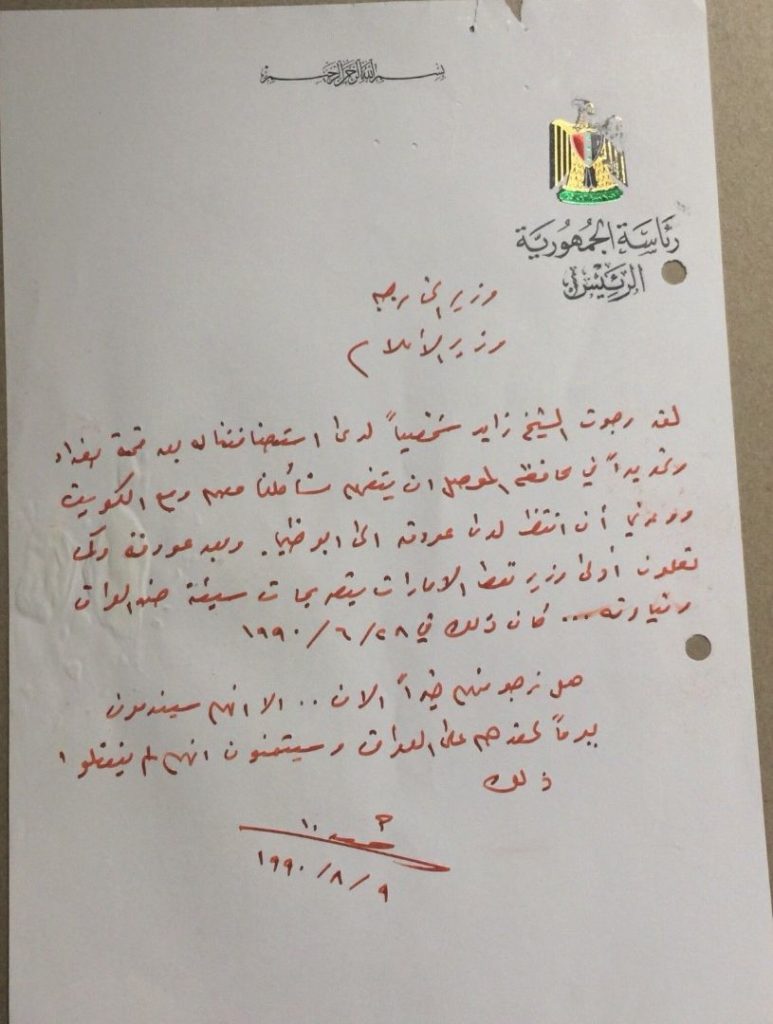 بسم الله الرحمن الرحيم
رئاسة الجمهورية
الرئيس
وزير الخارجيه
وزير الأعلام
لقد رجوت الشيخ زايد شخصياً لدى استضافتنا له بعد قمة بغداد
وتحديداً في محافظة الموصل ان يتفهم مشاكلنا معهم ومع الكويت
ووعدني أن انتظر لدى عودته الى ابو ظبي. وبعد عودته وكما
تعلمون أدلى وزير نفط الامارات بتصريحات سيئة ضد العراق
وقيادته... كان ذلك في ٢٨/٦/١٩٩٠
هل نرجو منهم خيراً الان .. الا انهم سيندمون
يوماً لحقدهم على العراق وسيتمنون انهم لم يفعلوا
ذلك
٩/٨/١٩٩٠